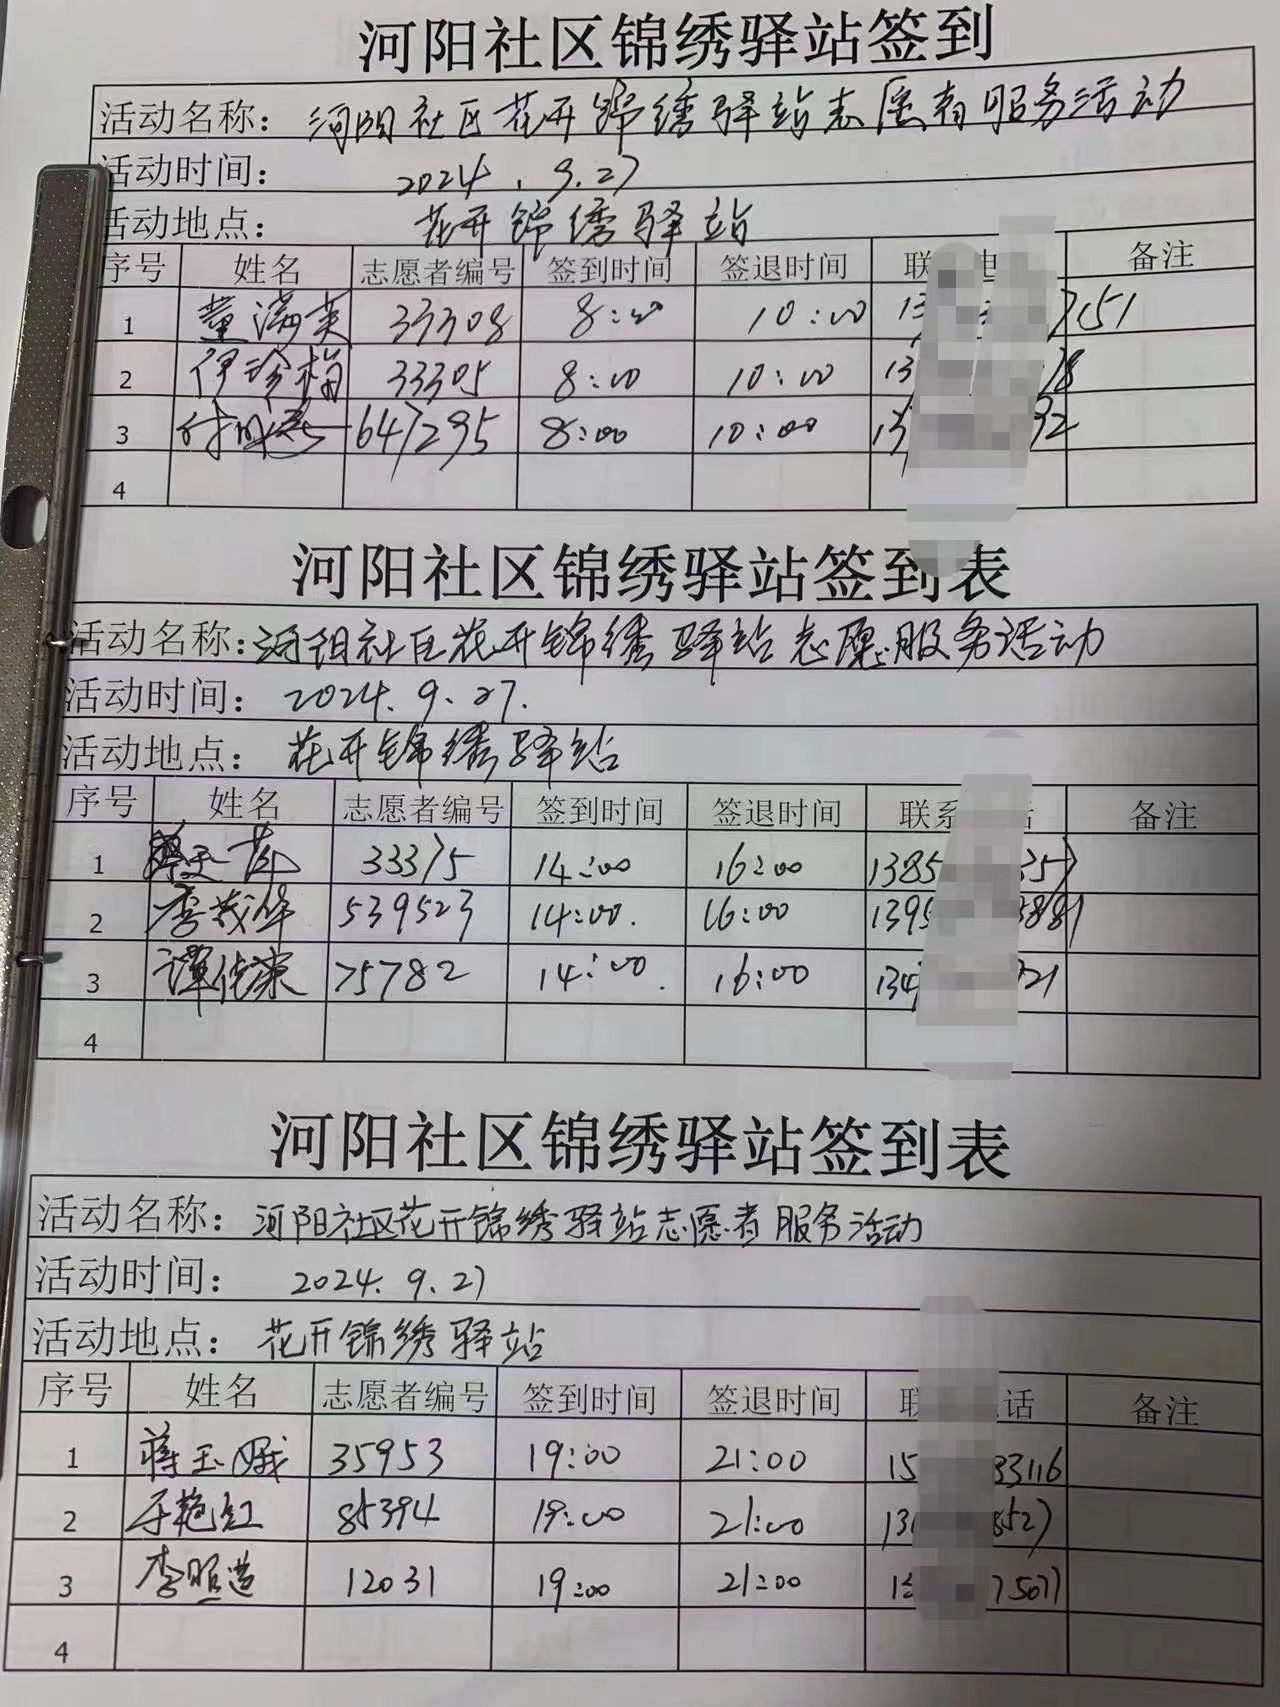 河阳社区锦绣驿站签到
活动名称：河阳社区花开锦绣驿站志愿者服务活动
活动时间：2024.9.27
活动地点：花开锦绣驿站
序号 姓名 志愿者编号 签到时间 签退时间 联 电 备注
1 董满英 33308 8:00 10:00 13 7151
2 伊珍梅 33305 8:00 10:00 13 78
3 647295 8:00 10:00 13 92
4
河阳社区锦绣驿站签到表
活动名称：河阳社区花开锦绣驿站志愿服务活动
活动时间：2024.9.27.
活动地点：花开锦绣驿站
序号 姓名 志愿者编号 签到时间 签退时间 联系 话 备注
1 33375 14:00 16:00 1385 357
2 李茂华 539523 14:00. 16:00 1395 3881
3 75782 14:00. 16:00 134 721
4
河阳社区锦绣驿站签到表
活动名称：河阳社区花开锦绣驿站志愿者服务活动
活动时间：2024.9.27
活动地点：花开锦绣驿站
序号 姓名 志愿者编号 签到时间 签退时间 联 话 备注
1 蒋玉娥 35953 19:00 21:00 15 33116
2 于艳红 85394 19:00 21:00 13 8527
3 李照道 12031 19:00 21:00 13 75077
4